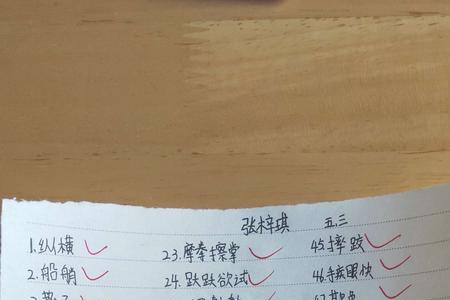 张梓琪 五、三
1.纵横 23.摩拳擦掌 45.摔跤
2.船艄 24.跃跃欲试 46.手疾眼快